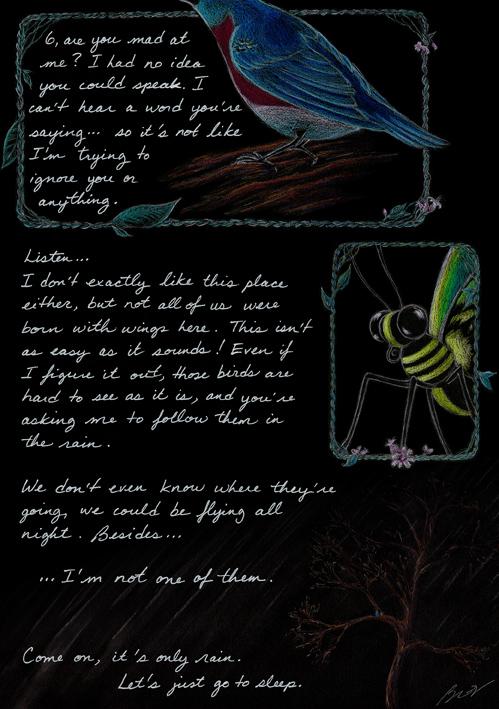 6, are you mad at
me? I had no idea
you could speak. I
can't hear a word you're
saying... so it's not like
I'm trying to
ignore you or
anything.
Listen...
I don't exactly like this place
either, but not all of us were
born with wings here. This isn't
as easy as it sounds! Even if
I figure it out, those birds are
hard to see as it is, and you're
asking me to follow them in
the rain.
We don't even know where they're
going, we could be flying all
night. Besides...
...I'm not one of them.
Come on, it's only rain.
Let's just go to sleep.